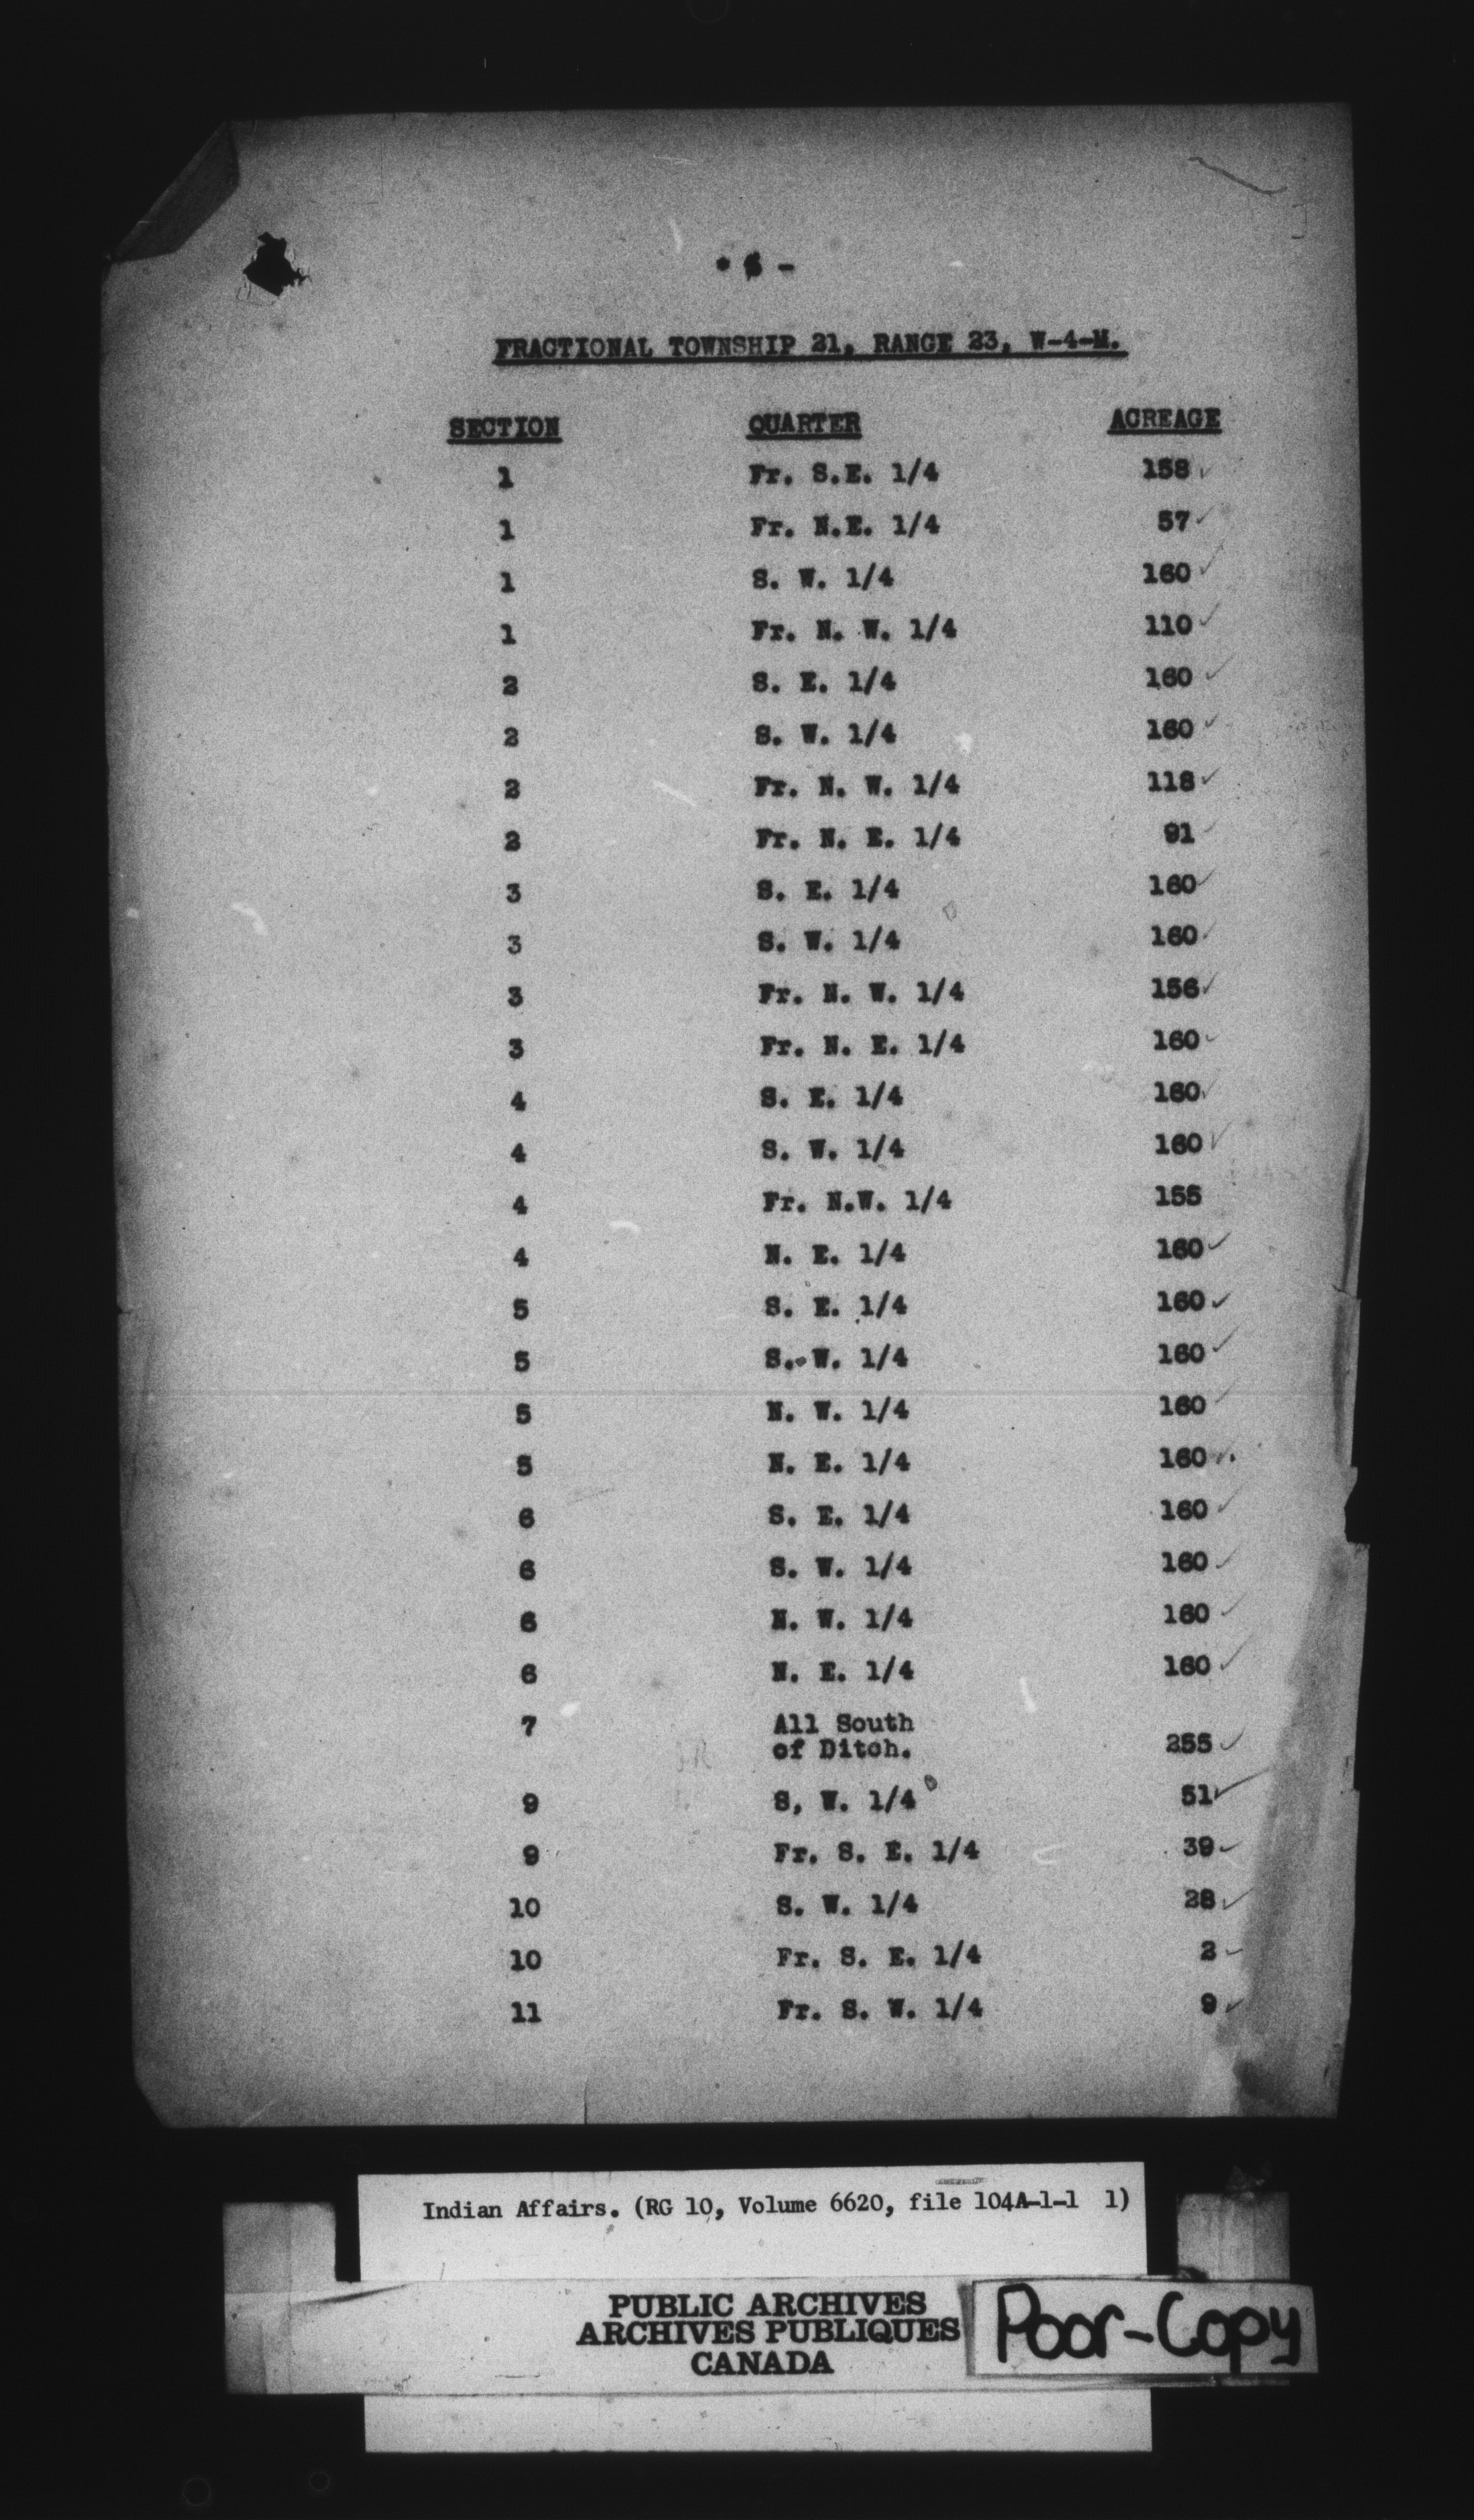 - 6 -
FRACTIONAL TOWNSHIP 21, RANGE 23, W-4-M.
SECTION QUARTER ACREAGE
1 Fr. S.E. 1/4 158
1 Fr. N.E. 1/4 57
1 S. W. 1/4 160
1 Fr. N. W. 1/4 110
2 S. E. 1/4 160
2 S. W. 1/4 160
2 Fr. N. W. 1/4 118
2 Fr. N. E. 1/4 91
3 S. E. 1/4 160
3 S. W. 1/4 160
3 Fr. N. W. 1/4 156
3 Fr. N. E. 1/4 160
4 S. E. 1/4 160
4 S. W. 1/4 160
4 Fr. N.W. 1/4 155
4 N. E. 1/4 160
5 S. E. 1/4 160
5 S. W. 1/4 160
5 N. W. 1/4 160
5 N. E. 1/4 160
6 S. E. 1/4 160
6 S. W. 1/4 160
6 N. W. 1/4 160
6 N. E. 1/4 160
7 All South
of Ditch. 255
9 S, W. 1/4 51
9 Fr. S. E. 1/4 39
10 S. W. 1/4 28
10 Fr. S. E. 1/4 2
11 Fr. S. W. 1/4 9
Indian Affairs. (RG 10, Volume 6620, file 104A-1-1 1)
PUBLIC ARCHIVES
ARCHIVES PUBLIQUES
CANADA
Poor-Copy